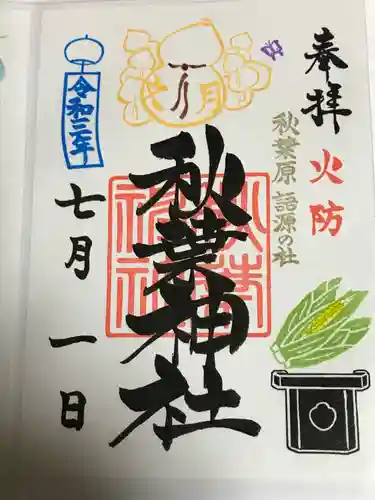 奉拝
火防
秋葉原 語源の社
秋葉神社
七月
令和三年
七月一日